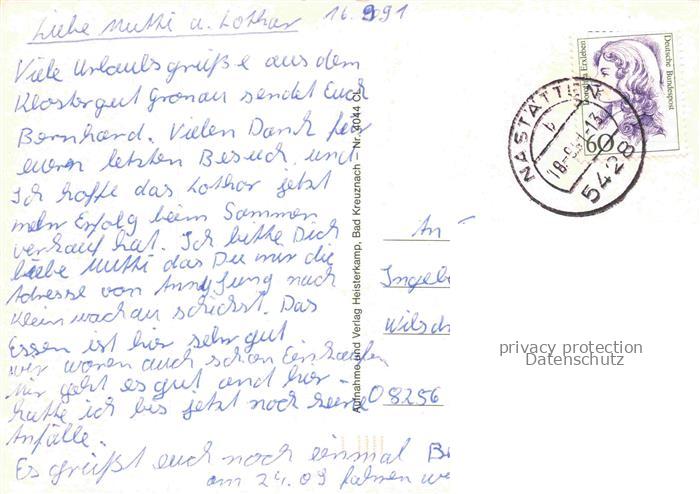 Liebe Mutti u. Lothar 16.9.91
Viele Urlaubsgrüße aus dem
Klostergut Gronau sendet Euch
Bernhard. Vielen Dank für
euren letzten Besuch und
Ich hoffe das Lothar jetzt
mehr Erfolg beim Sommer
verkauf hat. Ich bitte Dich
liebe Mutti das Du mir die
Adresse von Anny Jung nach
Kleinwachau schickst. Das
Essen ist hier sehr gut
wir waren auch schon Einkaufen
Mir geht es gut und hier
hatte ich bis jetzt noch keine
Anfälle.
Es grüßt euch noch einmal Be
am 24.09 fahren we
Aufnahme und Verlag Heisterkamp, Bad Kreuznach – Nr. 4044 CL
Deutsche Bundespost
Dorothea Erxleben
60
NASTÄTTEN
b
5428
An
Ingeb
Wilsch
08256
privacy protection
Datenschutz